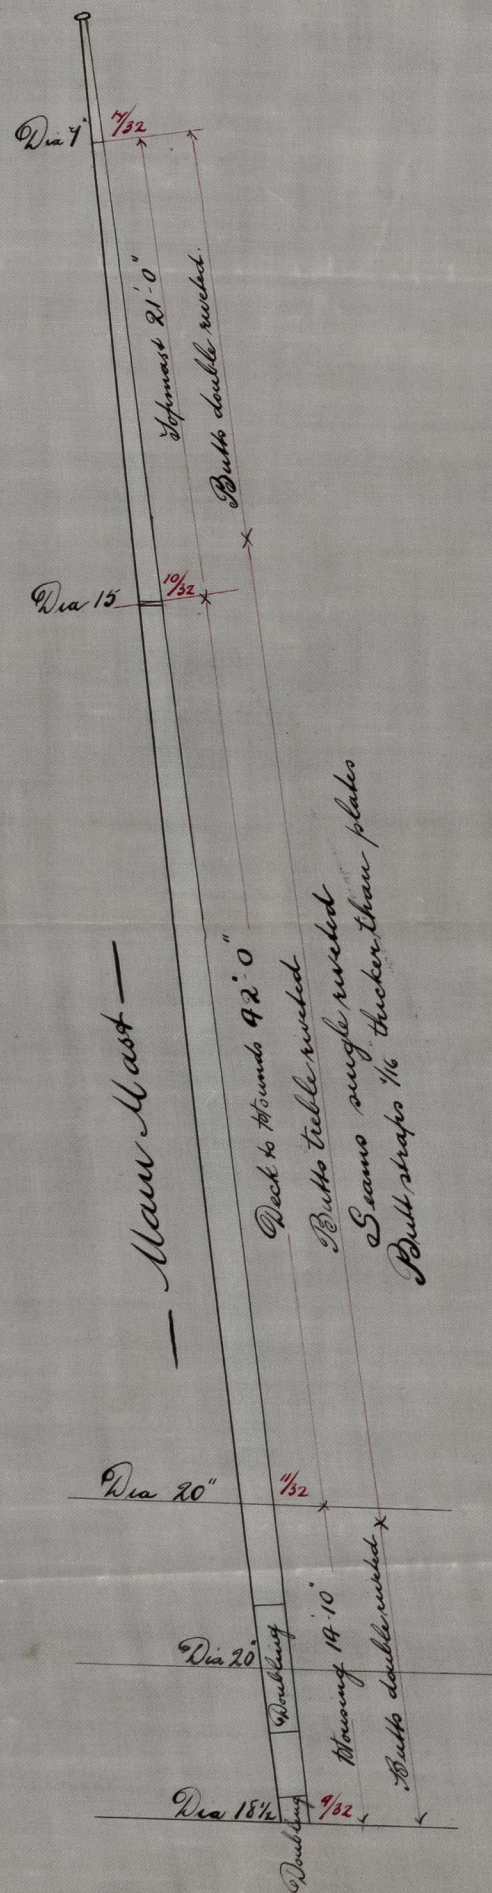 Dia 7"
7/32
Topmast 21'-0"
Butts double riveted.
Dia 15
10/32
— Main Mast —
Deck to Hounds 42'-0"
Butts treble riveted
Seams single riveted
Butt straps 1/16 thicker than plates
Dia 20"
11/32
Dia 20"
Doubling
Housing 14'-10"
Butts double riveted
Dia 18½
9/32
Doubling